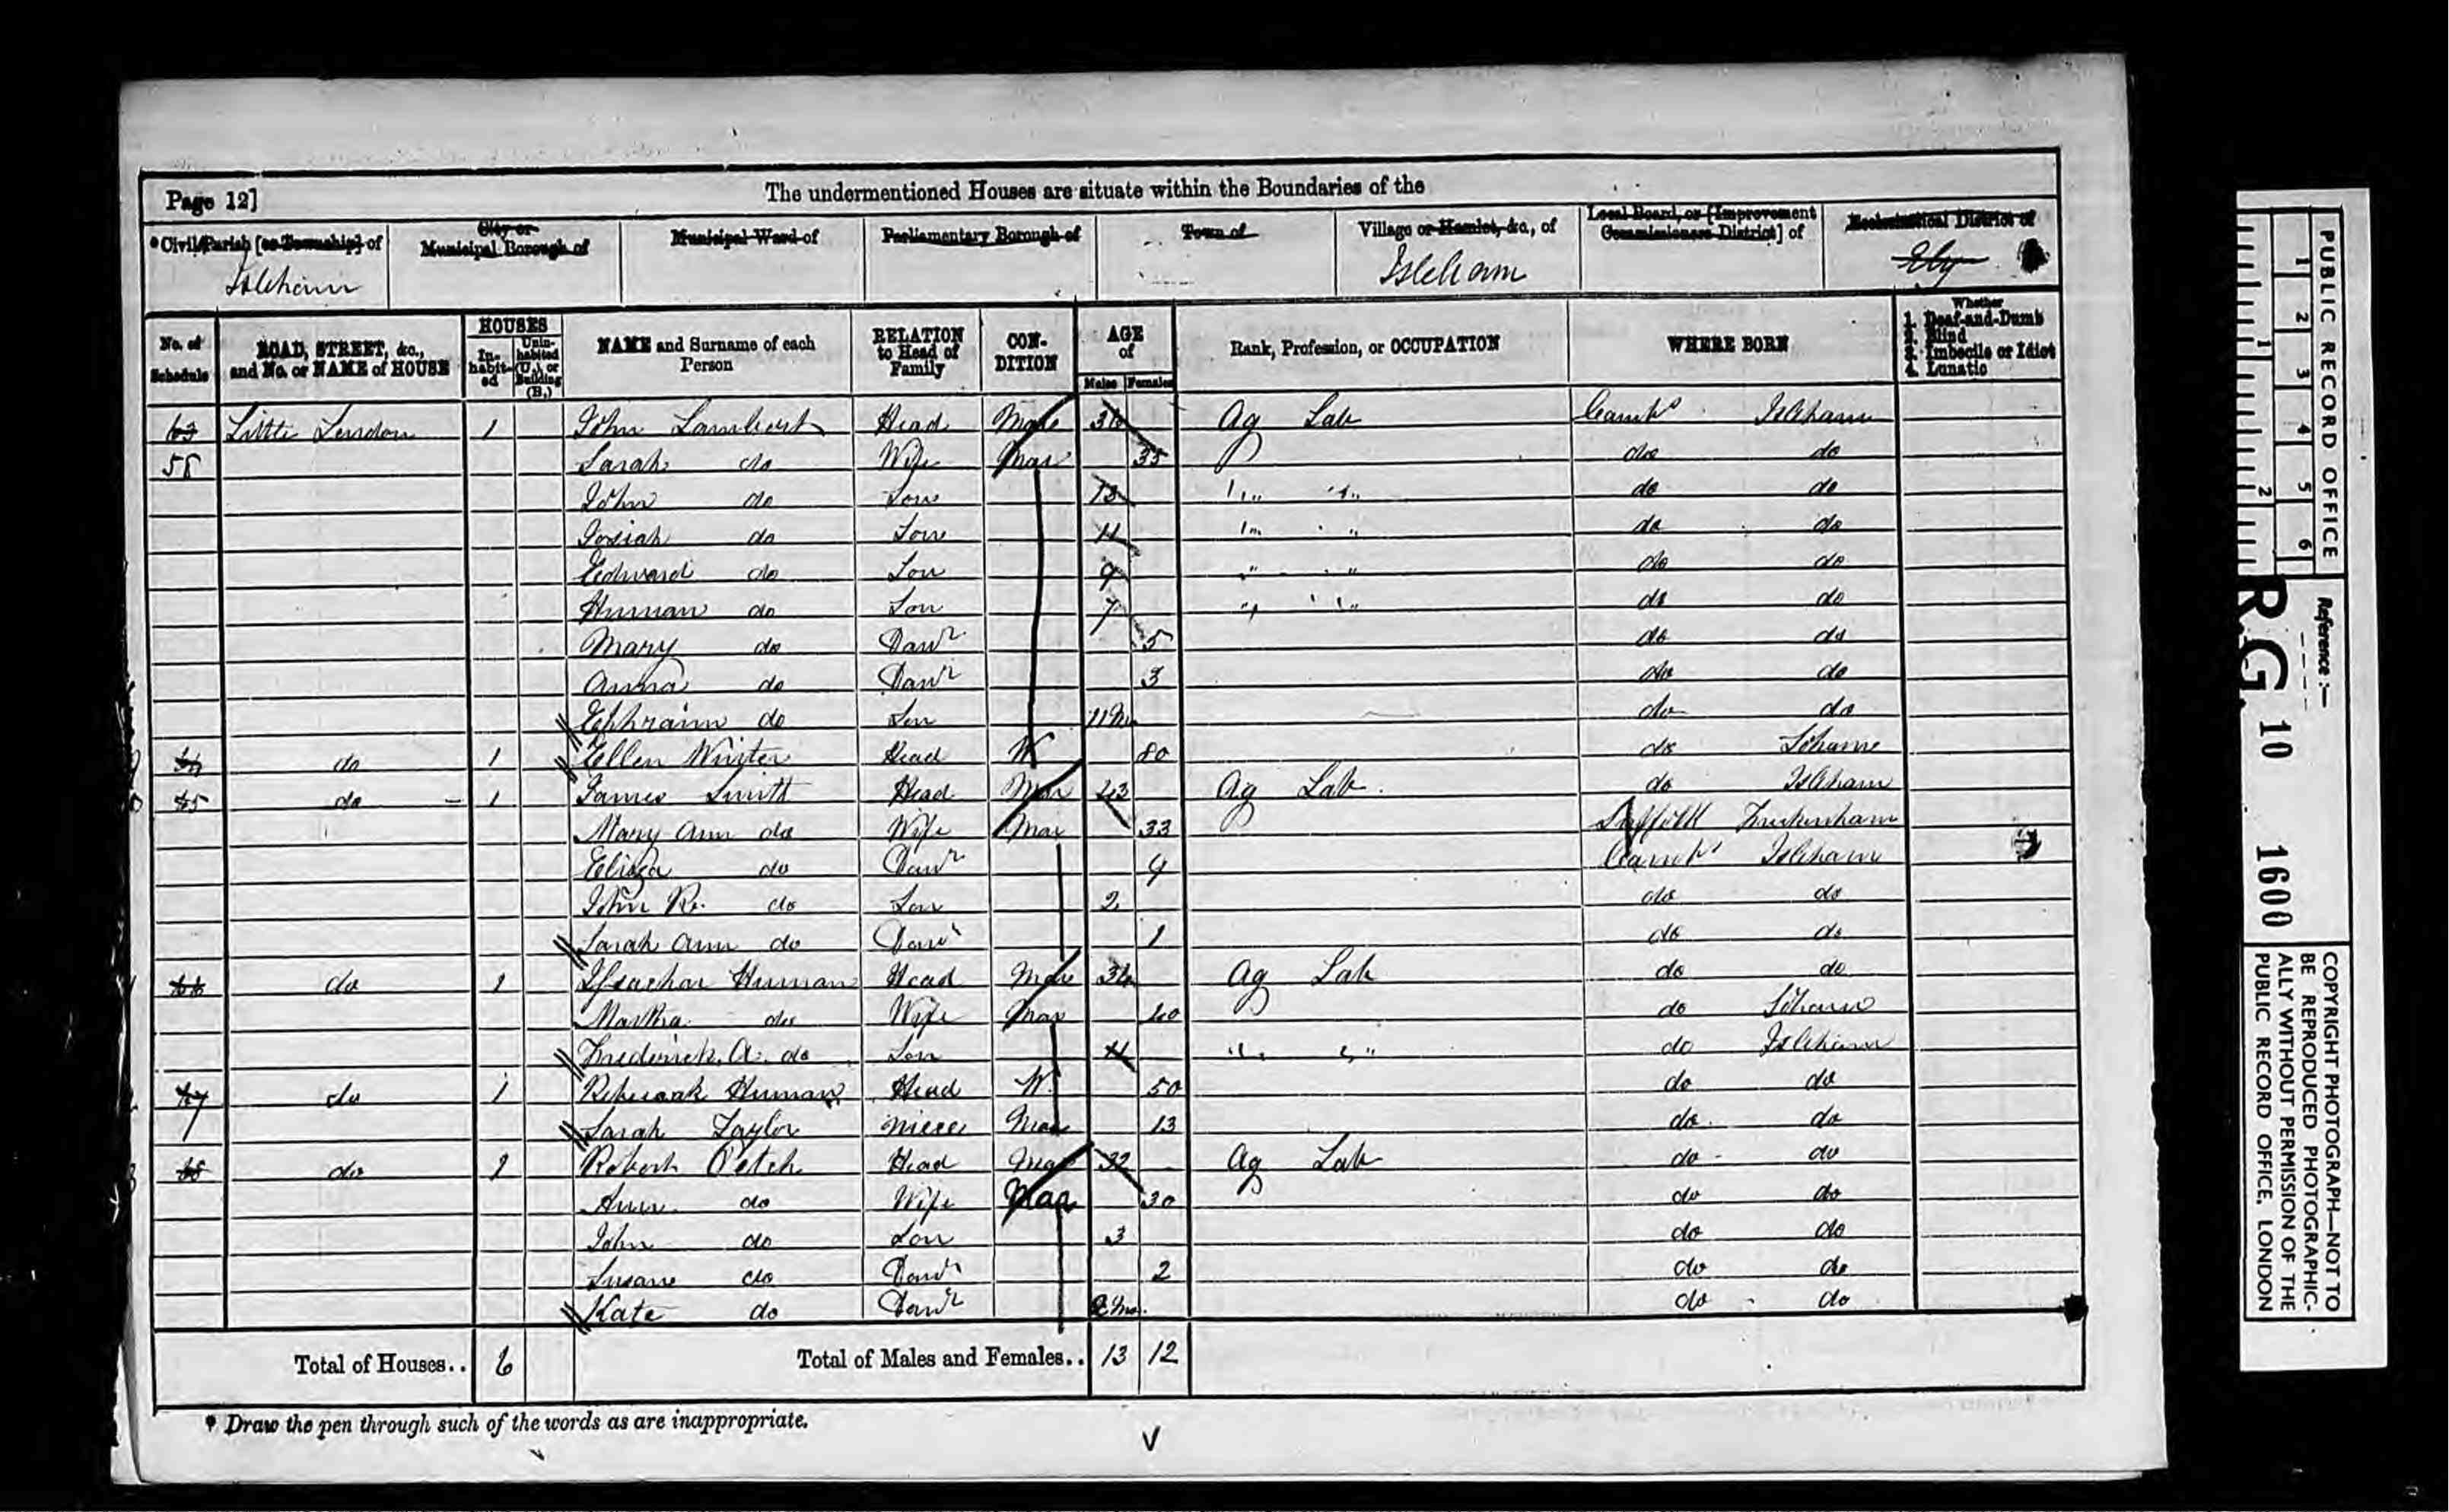 Page 12]
The undermentioned Houses are situate within the Boundaries of the
* Civil Parish [or Township] of
City or Municipal Borough of
Municipal Ward of
Parliamentary Borough of
Town of
Village or Hamlet, &c., of
Local Board, or [Improvement Commissioners District] of
Ecclesiastical District of
Isleham Isleham Ely
No. of Schedule
ROAD, STREET, &c., and No. or NAME of HOUSE
HOUSES
In-habit-ed
Unin-habited (U.), or Building (B.)
NAME and Surname of each Person
RELATION to Head of Family
CON-DITION
AGE of
Males Females
Rank, Profession, or OCCUPATION
WHERE BORN
Whether
1. Deaf-and-Dumb
2. Blind
3. Imbecile or Idiot
4. Lunatic
63 Little London 1 John Lambert Head Mar 36 Ag Lab Cambs Isleham
58 Sarah do Wife Mar 35 do do
John do Son 13 " " do do
Josiah do Son 11 " " do do
Edward do Son 9 " " do do
Human do Son 7 " " do do
Mary do Daur 5 do do
Anna do Daur 3 do do
Ephraim do Son 11 Mo do do
64 do 1 Ellen Winter Head W 80 do Soham
65 do 1 James Smith Head Mar 43 Ag Lab do Isleham
Mary Ann do Wife Mar 33 Suffolk Freckenham
Eliza do Daur 9 Cambs Isleham
John R. do Son 2 do do
Sarah Ann do Daur 1 do do
66 do 1 Issachar Human Head Mar 34 Ag Lab do do
Martha do Wife Mar 40 do Soham
Frederick A. do Son 11 " " do Isleham
67 do 1 Rebecah Human Head W 50 do do
Sarah Taylor niece 13 do do
68 do 1 Robert Petch Head Mar 32 Ag Lab do do
Ann do Wife Mar 30 do do
John do Son 3 do do
Susan do Daur 2 do do
Kate do Daur Mo. do do
Total of Houses.. 6 Total of Males and Females.. 13 12
* Draw the pen through such of the words as are inappropriate.
PUBLIC RECORD OFFICE
1 2 3 4 5 6
1 2
Reference :—
R.G. 10 1600
COPYRIGHT PHOTOGRAPH—NOT TO
BE REPRODUCED PHOTOGRAPHIC-
ALLY WITHOUT PERMISSION OF THE
PUBLIC RECORD OFFICE, LONDON